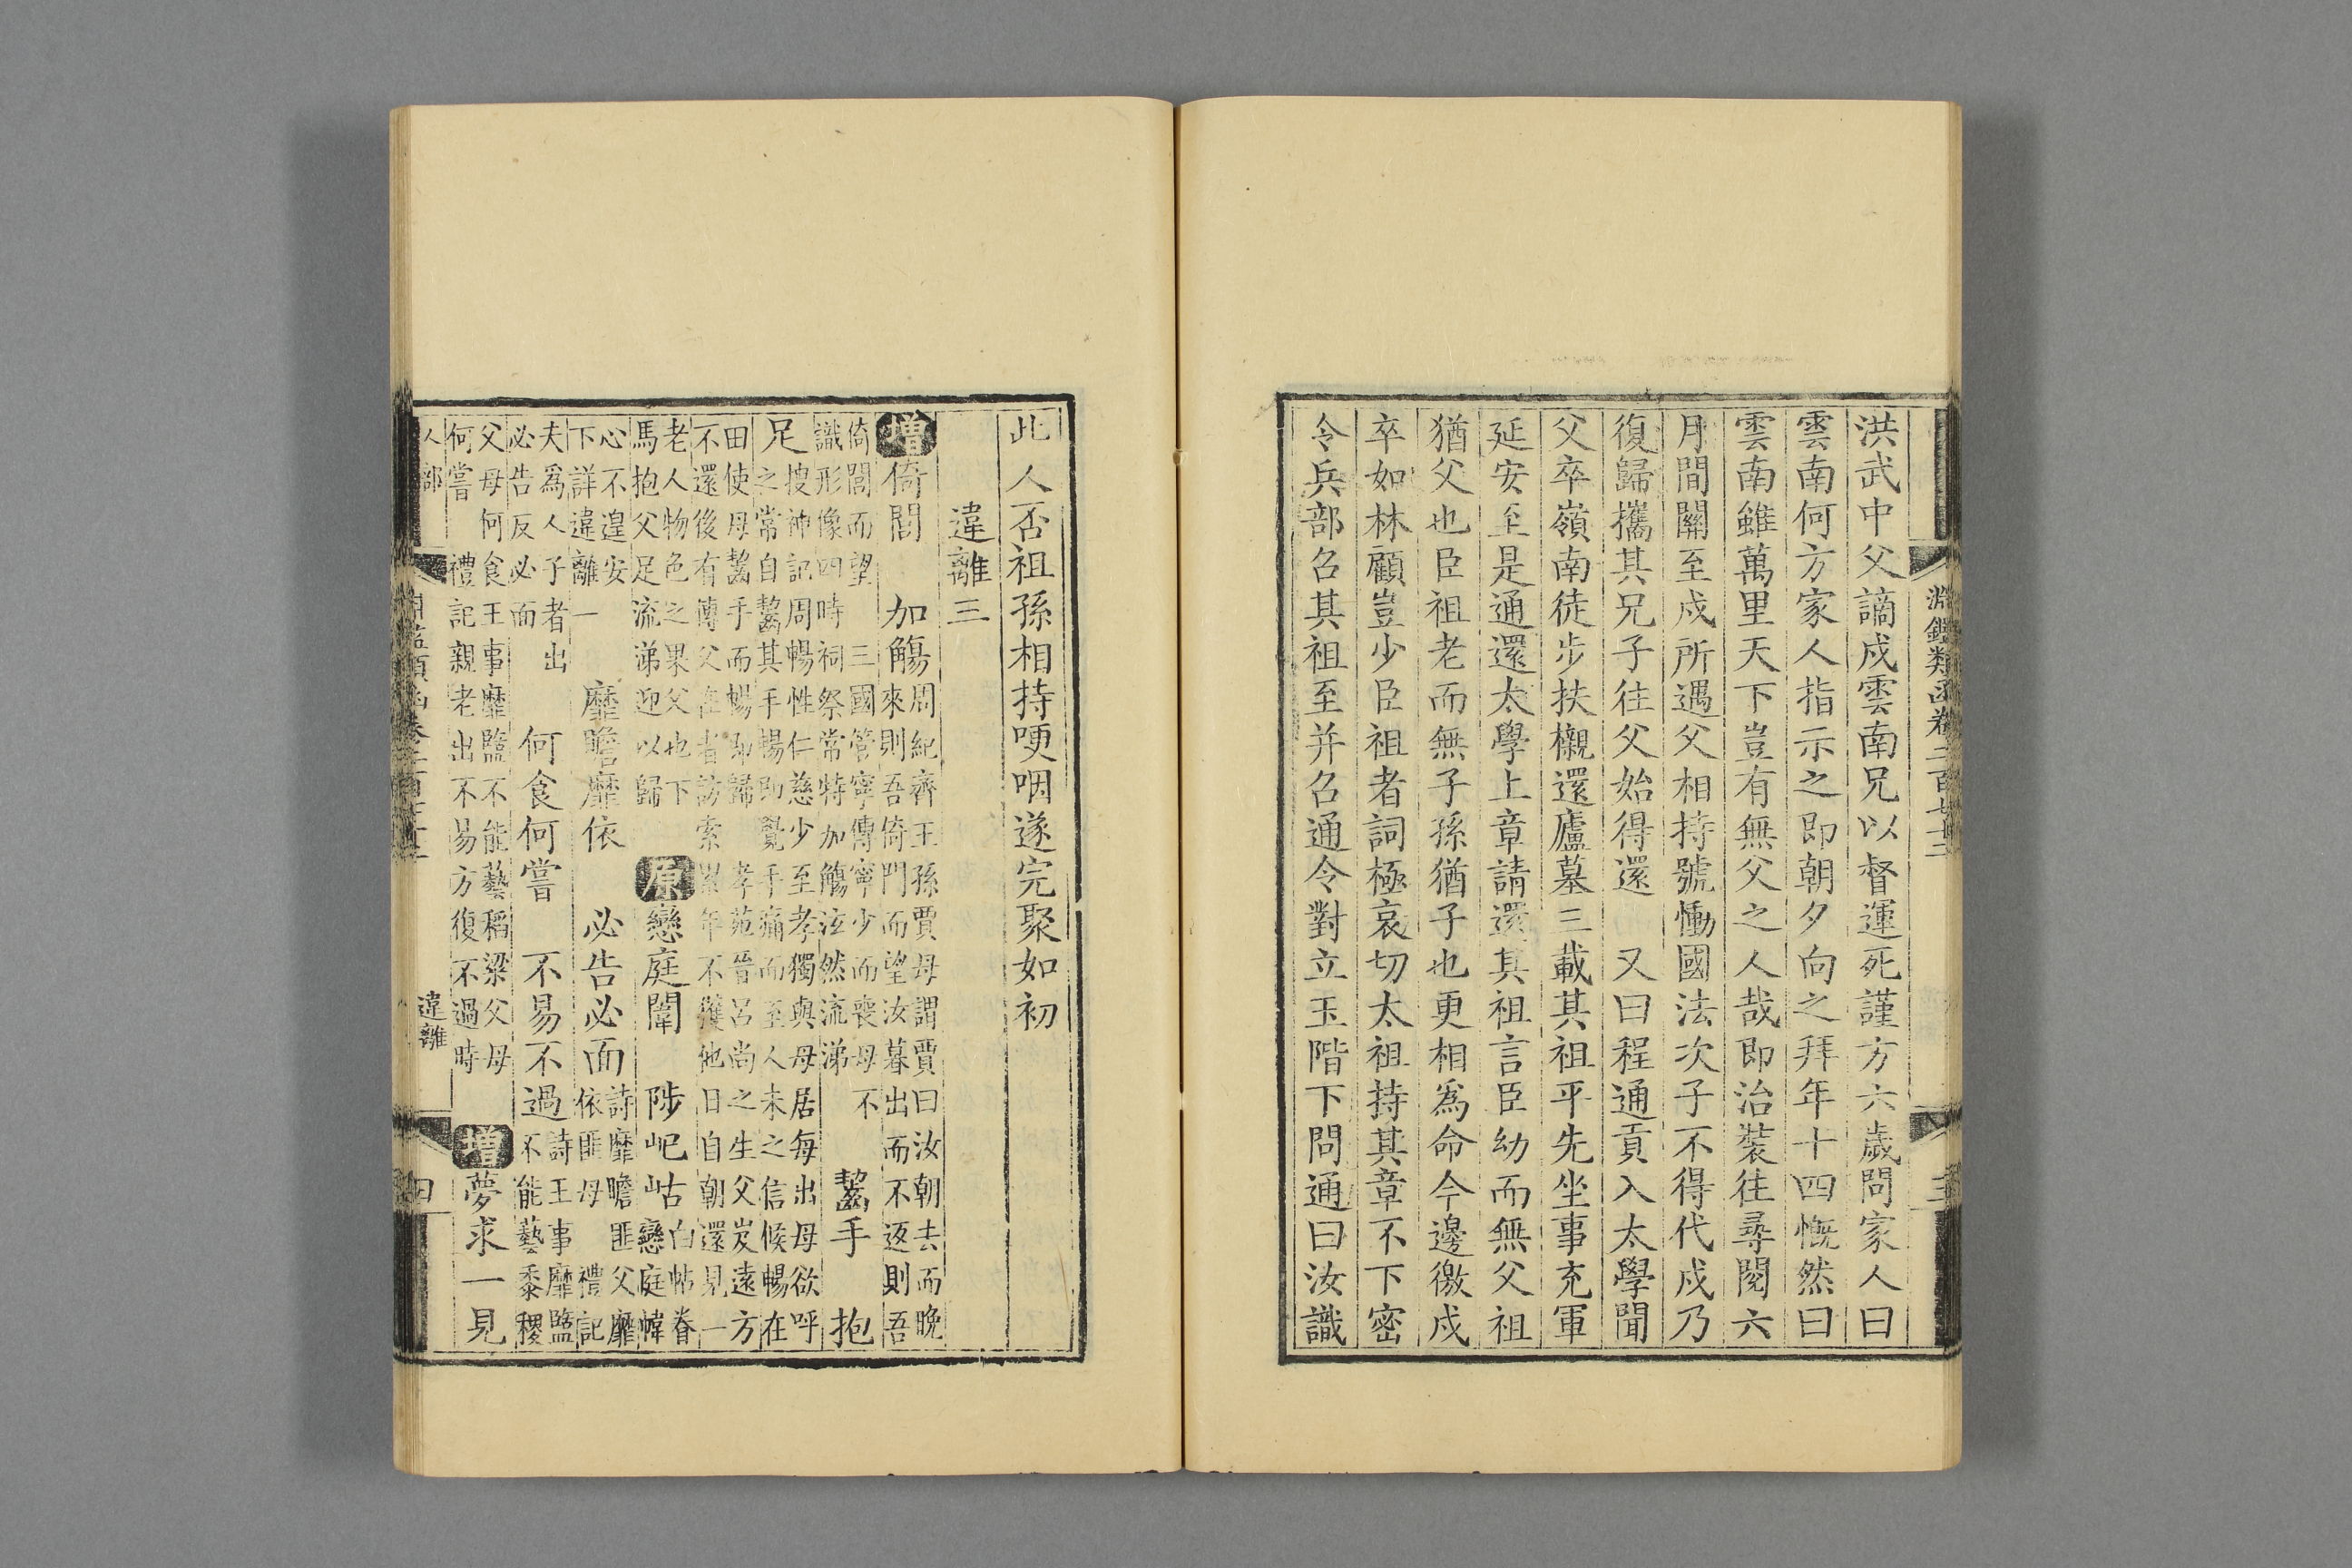 洪武中父謫戍雲南兄以督運死謹方六歲問家人曰
雲南何方家人指示之即朝夕向之拜年十四慨然曰
雲南雖萬里天下豈有無父之人哉即治裝往尋閱六
月間關至戍所遇父相持號慟國法次子不得代戍乃
復歸攜其兄子往父始得還 又曰程通貢入太學聞
父卒嶺南徒步扶櫬還廬墓三載其祖平先坐事充軍
延安至是通還太學上章請還其祖言臣幼而無父祖
猶父也臣祖老而無子孫猶子也更相爲命今邊徼戍
卒如林顧豈少臣祖者詞極哀切太祖持其章不下密
令兵部召其祖至并召通令對立玉階下問通曰汝識
此人否祖孫相持哽咽遂完聚如初
違離三
增倚閭 加觴
周紀齊王孫賈母謂賈曰汝朝去而晚
來則吾倚門而望汝暮出而不返則吾
倚閭而望 三國管寧傳寧少而喪母不
識形像四時祠祭常特加觴泫然流涕
齧手 抱
足
搜神記周暢性仁慈少至孝獨與母居每出母欲呼
之常自齧其手暢即覺手痛而至人未之信候暢在
田使母齧手而暢即歸 孝苑晉呂尚之生父岌遠方
不還後有傳父在者訪索累年不獲他日自朝還見一
老人物色之果父也下
馬抱父足流涕迎以歸
原戀庭闈 陟屺岵
白帖眷
戀庭幃
心不遑安
下詳違離一
靡瞻靡依 必告必面
詩靡瞻匪父靡
依匪母 禮記
夫爲人子者出
必告反必面
何食何嘗 不易不過
詩王事靡盬
不能藝黍稷
父母何食王事靡盬不能藝稻梁父母
何嘗 禮記親老出不易方復不過時
增夢求一見
違離
淵鑑類函卷二百七十二